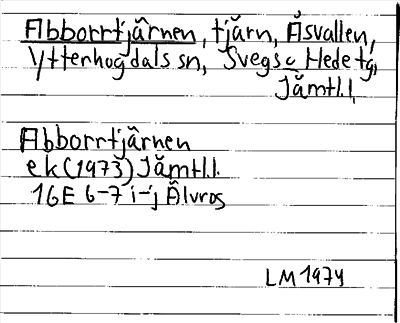 Abborrtjärnen, tjärn, Åsvallen,
Ytterhogdals sn, Svegs o Hede tg,
Jämtl.l.
Abborrtjärnen
ek (1973) Jämtl.l.
16E 6-7 i-j Älvros
LM 1974